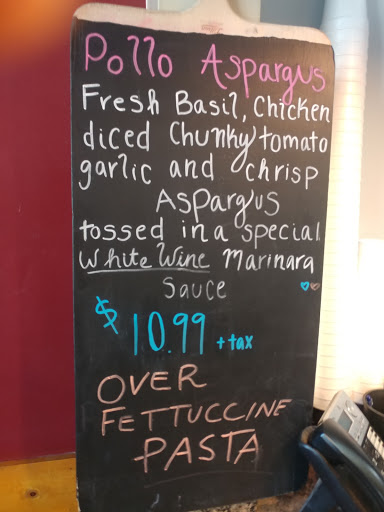 Pollo Aspargus
Fresh Basil, Chicken
diced Chunky tomato
garlic and chrisp
Aspargus
tossed in a special
White Wine Marinara
Sauce
$10.99 + tax
OVER
FETTUCCINE
PASTA